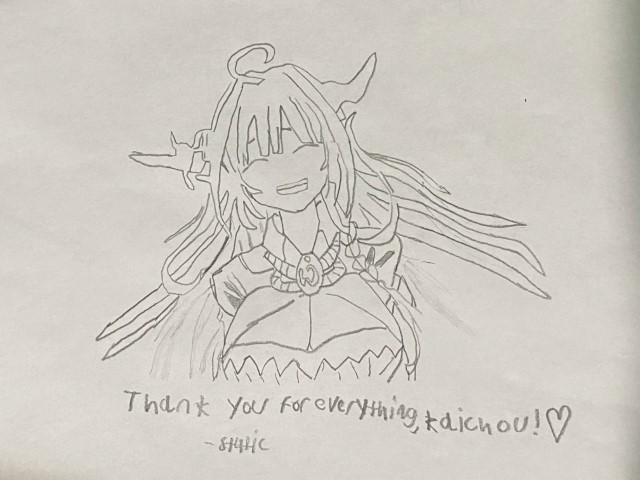 Thank you for everything, Kaichou! ♡
- static